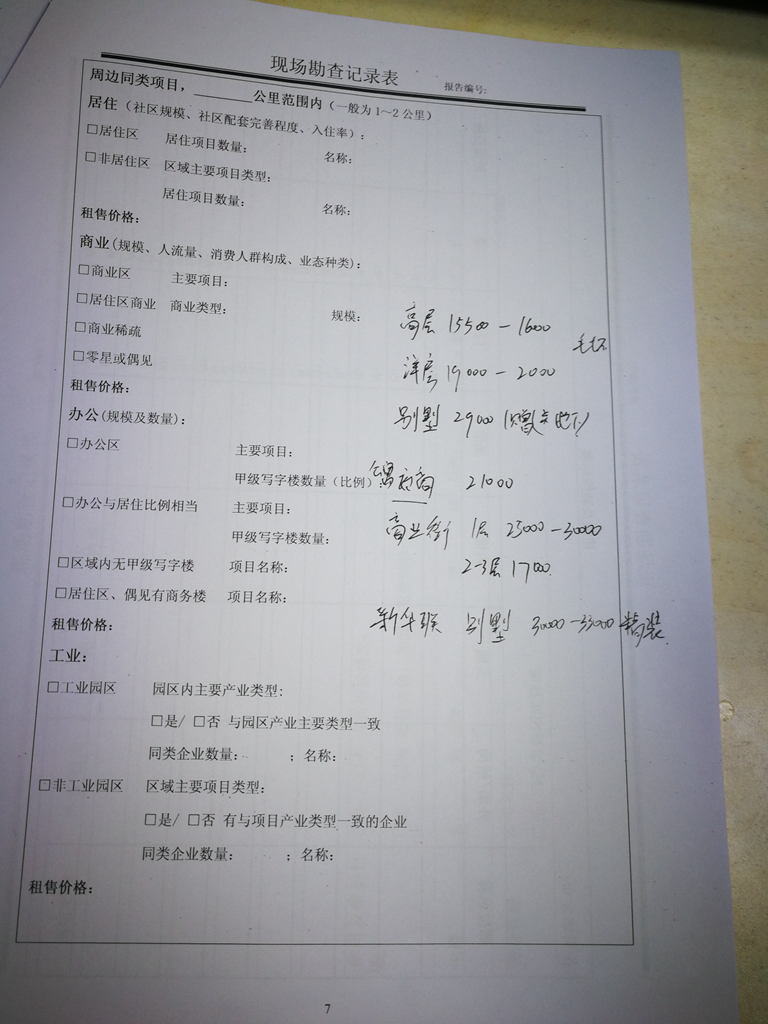 现场勘查记录表
报告编号:
周边同类项目，______公里范围内（一般为1～2公里）
居住（社区规模、社区配套完善程度、入住率）:
□居住区 居住项目数量: 名称:
□非居住区 区域主要项目类型:
居住项目数量: 名称:
租售价格:
商业(规模、人流量、消费人群构成、业态种类):
□商业区 主要项目:
□居住区商业 商业类型: 规模: 高层 15500－1600
□商业稀疏 毛坯
□零星或偶见 洋房 19000－2000
租售价格:
办公(规模及数量): 别墅 29000
□办公区 主要项目:
甲级写字楼数量（比例） 21000
□办公与居住比例相当 主要项目:
甲级写字楼数量: 商业街 1层 25000－30000
□区域内无甲级写字楼 项目名称: 2-3层 1700
□居住区、偶见有商务楼 项目名称:
租售价格: 新华联 别墅 30000－33000 精装
工业:
□工业园区 园区内主要产业类型:
□是/ □否 与园区产业主要类型一致
同类企业数量: ；名称:
□非工业园区 区域主要项目类型:
□是/ □否 有与项目产业类型一致的企业
同类企业数量: ；名称:
租售价格:
7